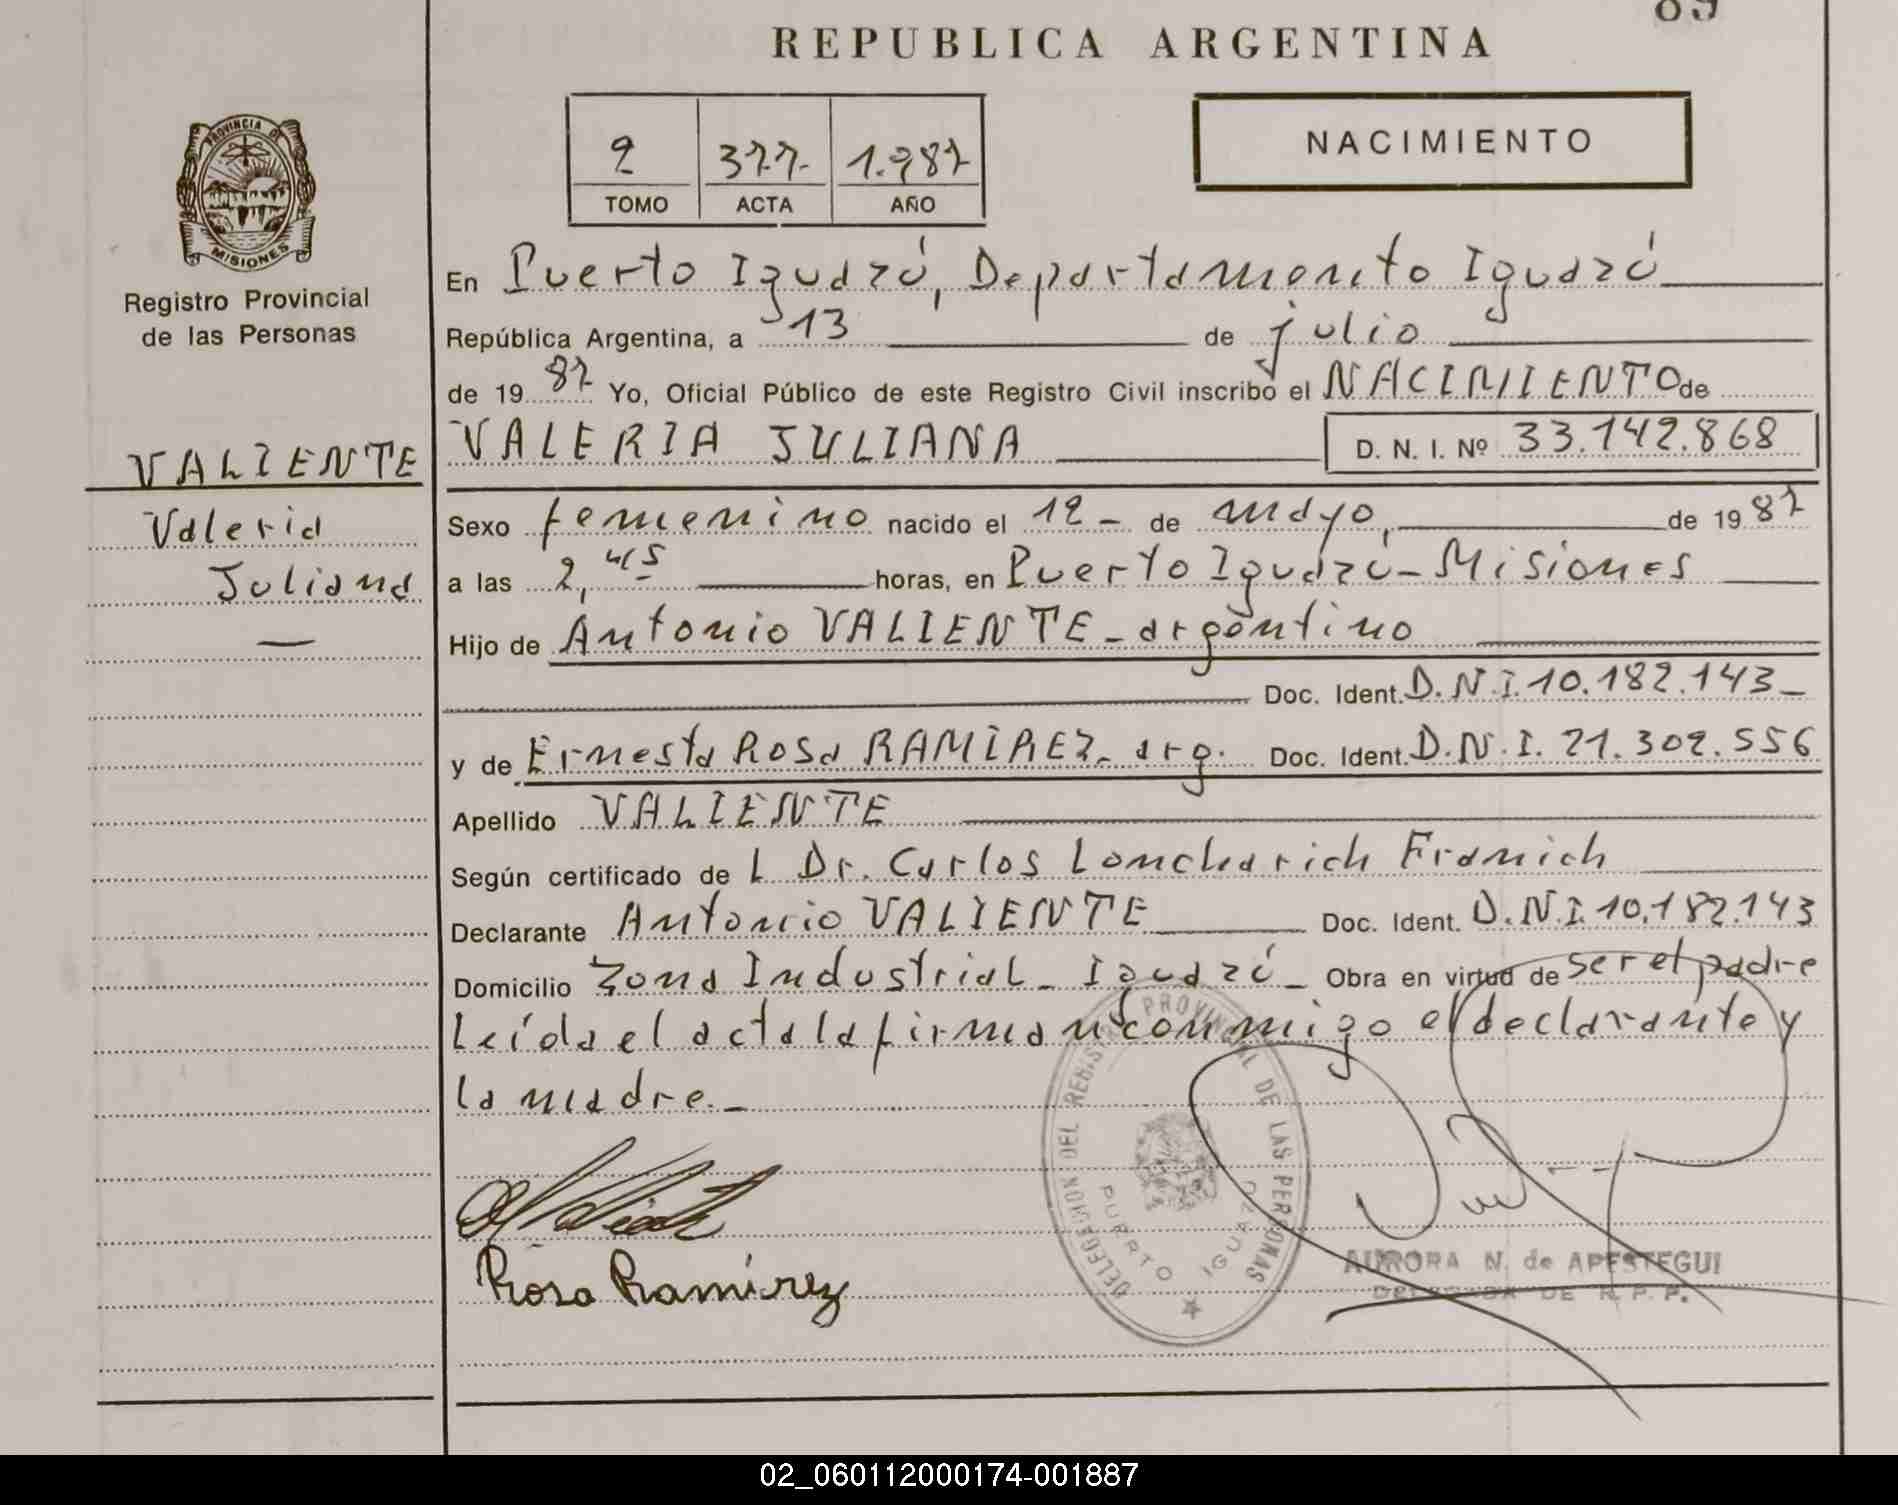 89
REPUBLICA ARGENTINA
PROVINCIA DE
MISIONES
Registro Provincial
de las Personas
2 377- 1.987
TOMO ACTA AÑO
NACIMIENTO
En Puerto Iguazú, Departamento Iguazú
República Argentina, a 13 de julio
de 19 87 Yo, Oficial Público de este Registro Civil inscribo el NACIMIENTO de
VALERIA JULIANA D. N. I. Nº 33.142.868
VALIENTE
Valeria
Juliana
Sexo femenino nacido el 12 - de mayo, de 19 87
a las 2,45 horas, en Puerto Iguazú - Misiones
Hijo de Antonio VALIENTE - argentino
Doc. Ident. D.N.I. 10.182.143 -
y de Ernesta Rosa RAMIREZ - arg. Doc. Ident. D.N.I. 21.302.556
Apellido VALIENTE
Según certificado de L Dr. Carlos Loncharich Franich
Declarante Antonio VALIENTE Doc. Ident. D.N.I. 10.182.143
Domicilio Zona Industrial - Iguazú - Obra en virtud de ser el padre
Leída el acta la firman conmigo el declarante y
la madre. -
Rosa Ramírez
DELEGACION DEL REGISTRO PROVINCIAL DE LAS PERSONAS
PUERTO IGUAZU
AURORA N. de APESTEGUI
DELEGADA DE R. P. P.
02_060112000174-001887